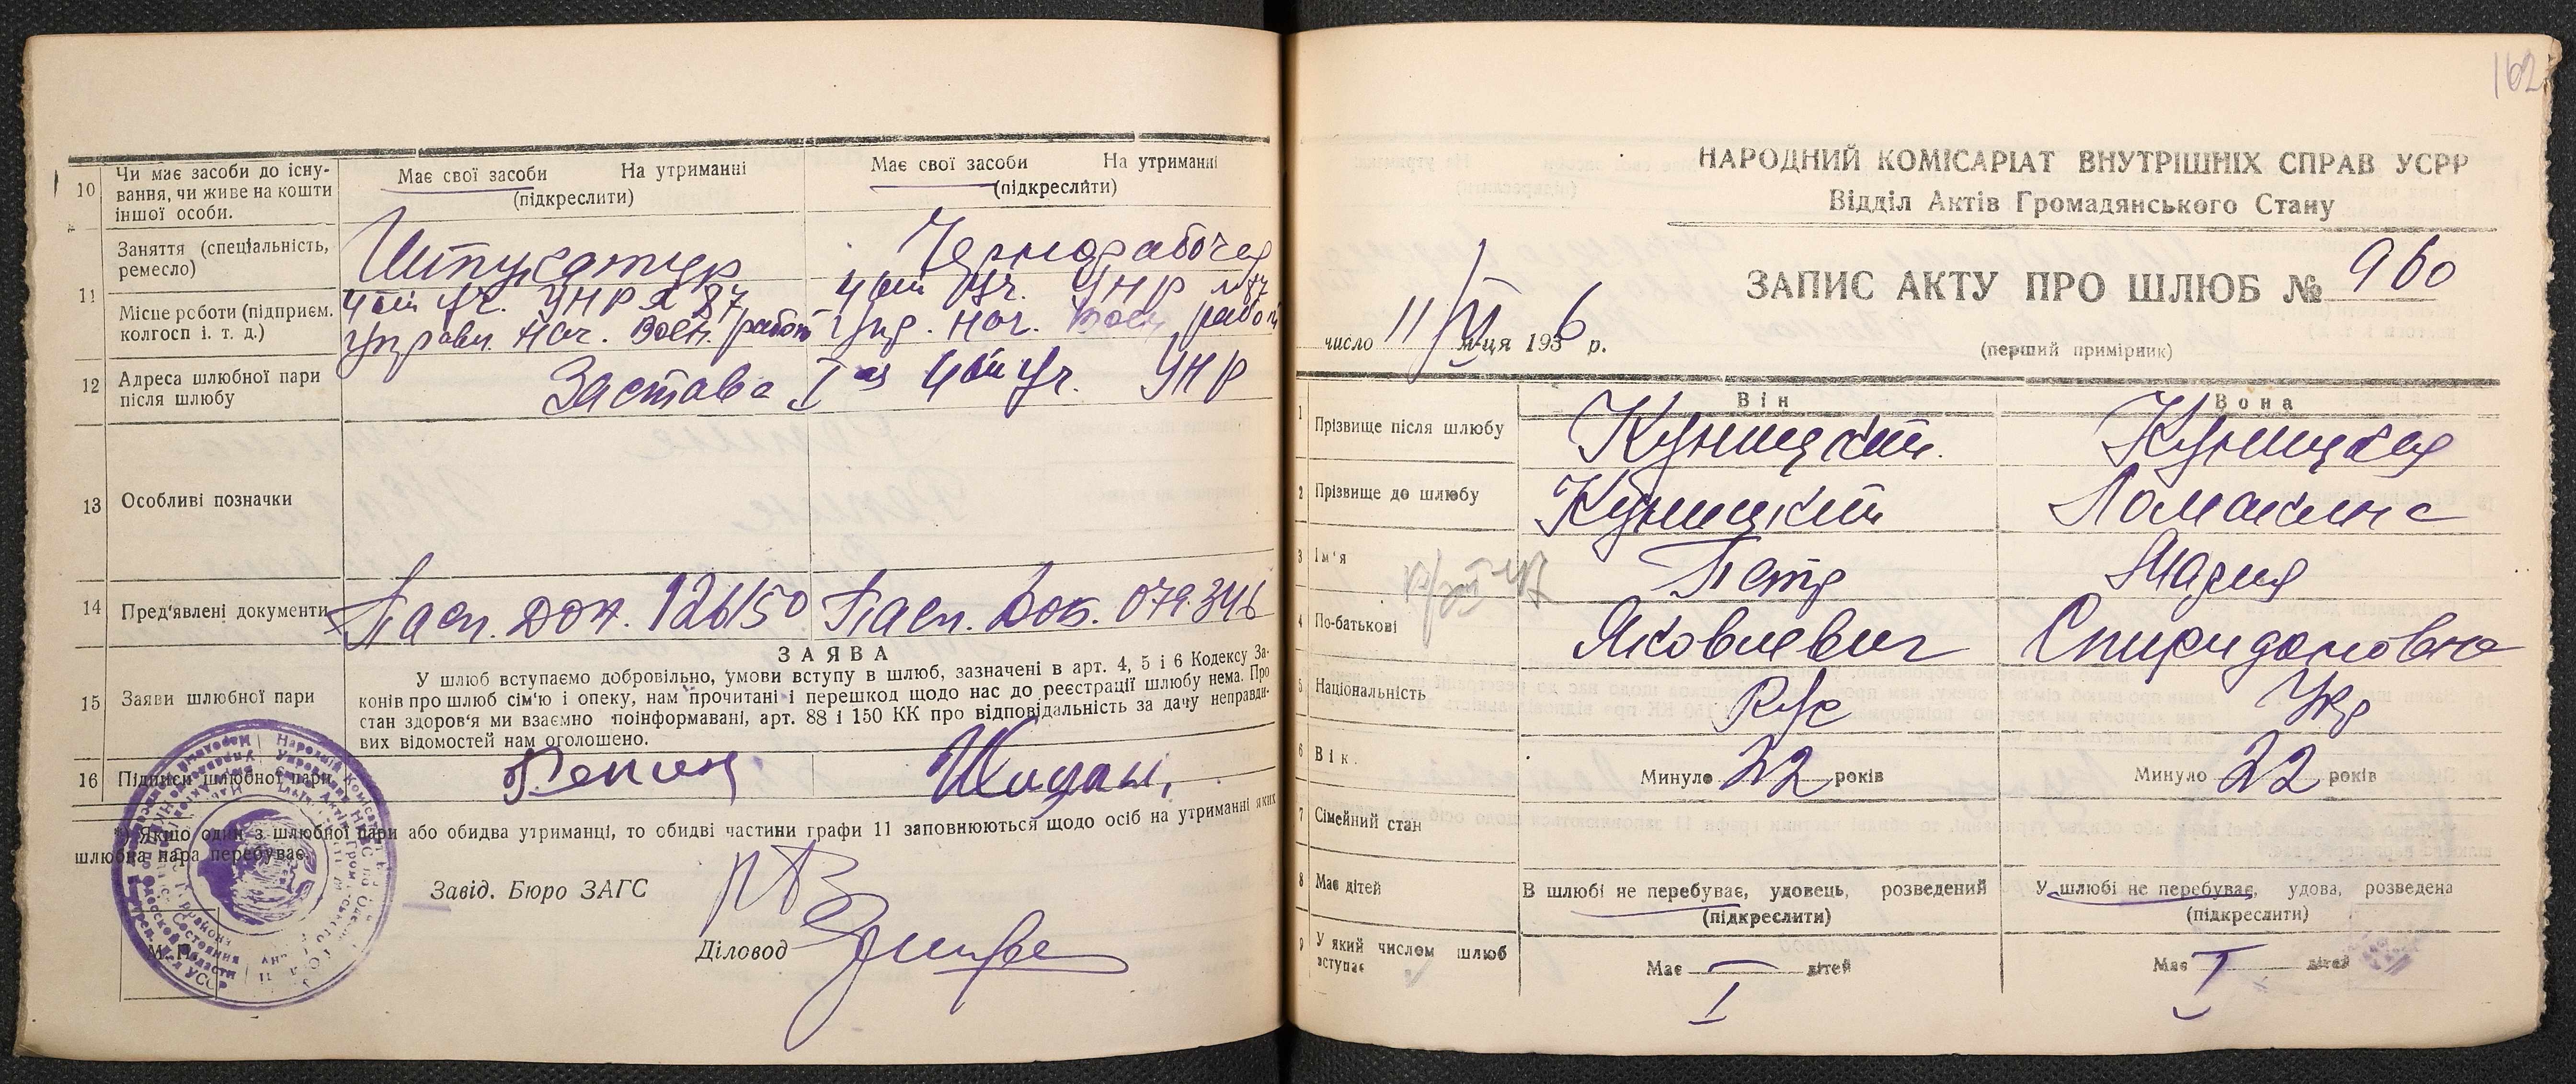 10 Чи має засоби до існу-
вання, чи живе на кошти
іншої особи.
Має свої засоби На утриманні
(підкреслити)
Має свої засоби На утриманні
(підкреслити)
11 Заняття (спеціальність,
ремесло)
Штукатур
Чернорабочая
Місце роботи (підприєм.
колгосп і. т. д.)
4ый Уч. УНР № 87
Управл. Нач. Воен. работ
4ый Уч. УНР № 87
Упр. Нач. Воен. работ
12 Адреса шлюбної пари
після шлюбу
Застава I ая 4ый Уч. УНР
13 Особливі позначки
14 Пред'явлені документи
Пасп. ДОЖ. 126150
Пасп. Вок. 079.346
15 Заяви шлюбної пари
ЗАЯВА
У шлюб вступаємо добровільно, умови вступу в шлюб, зазначені в арт. 4, 5 і 6 Кодексу За-
конів про шлюб сім'ю і опеку, нам прочитані і перешкод щодо нас до реєстрації шлюбу нема. Про
стан здоров'я ми взаємно поінформавані, арт. 88 і 150 КК про відповідальність за дачу неправди-
вих відомостей нам оголошено.
16 Підписи шлюбної пари
*) Якщо один з шлюбної пари або обидва утриманці, то обидві частини графи 11 заповнюються щодо осіб на утриманні яких
шлюбна пара перебуває.
Завід. Бюро ЗАГС
Діловод
М. П.
162
НАРОДНИЙ КОМІСАРІАТ ВНУТРІШНІХ СПРАВ УСРР
Відділ Актів Громадянського Стану
ЗАПИС АКТУ ПРО ШЛЮБ № 960
число 11/VI м-ця 1936 р.
(перший примірник)
Він Вона
1 Прізвище після шлюбу Куницкий. Куницкая
2 Прізвище до шлюбу Куницкий Ломакина
3 Ім'я Петр Мария
4 По-батькові Яковлевич Спиридоновна
5 Національність Рус Укр
6 Вік. Минуло 22 років Минуло 22 років
7 Сімейний стан
8 Має дітей
В шлюбі не перебуває, удовець, розведений
(підкреслити)
У шлюбі не перебуває, удова, розведена
(підкреслити)
9 У який числом шлюб
вступає
Має — дітей
I
Має — дітей
I